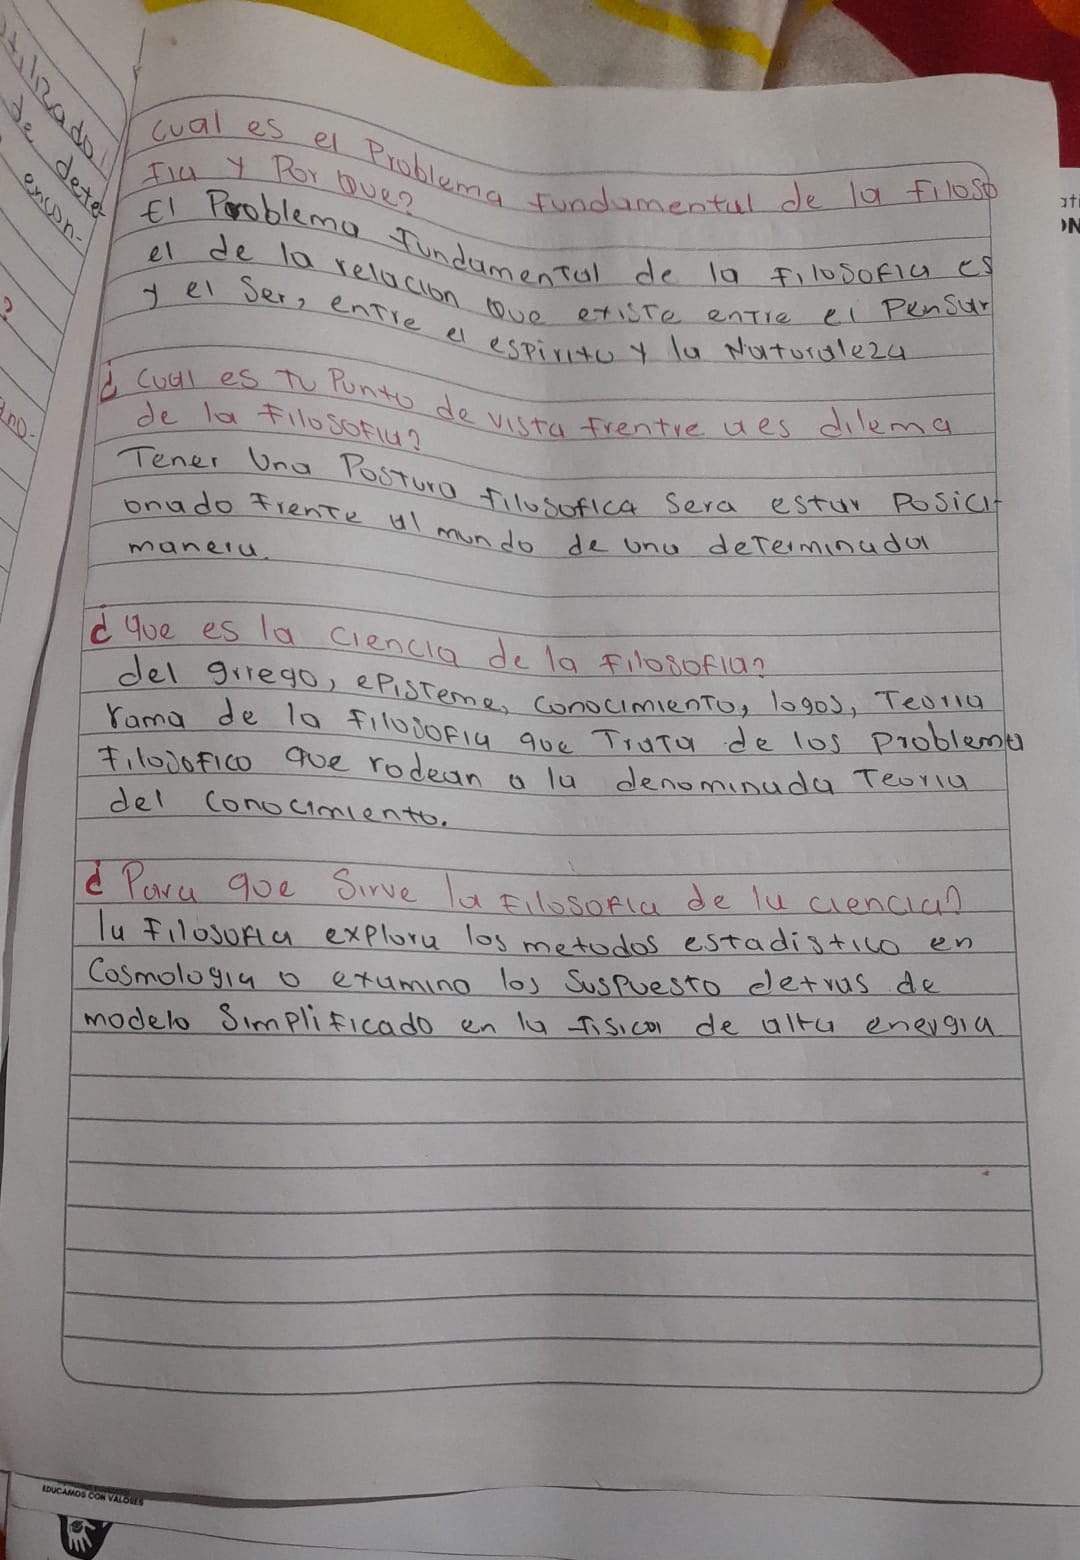 tilizado
de dete
encon-
?
ano-
Cual es el Problema fundamental de la filoso
fia y Por Que?
El Problema fundamental de la filosofia es
el de la relacion Que existe entre el Pensar
y el Ser, entre el espiritu y la Naturaleza
¿ Cual es tu Punto de vista frentre aes dilema
de la filosofia?
Tener Una Postura filosofica Sera estar Posici-
onado frente al mundo de una determinada
manera.
¿ que es la ciencia de la filosofia?
del griego, episteme, conocimiento, logos, Teoria
rama de la filosofia que Trata de los problema
filosofico que rodean a la denominada Teoria
del conocimiento.
¿ Para que Sirve la filosofia de la ciencia?
la filosofia explora los metodos estadistico en
Cosmologia o examina los Suspuesto detras de
modelo Simplificado en la fisica de alta energia
EDUCAMOS CON VALORES